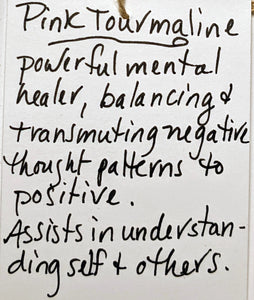 Pink Tourmaline
powerful mental
healer, balancing &
transmuting negative
thought patterns to
positive.
Assists in understan-
ding self & others.